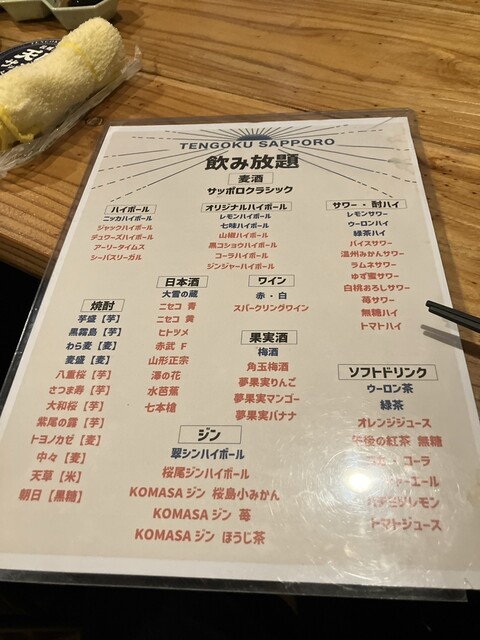 TENGOKU SAPPORO
飲み放題
麦酒
サッポロクラシック
ハイボール
ニッカハイボール
ジャックハイボール
デュワーズハイボール
アーリータイムス
シーバスリーガル
オリジナルハイボール
レモンハイボール
七味ハイボール
山椒ハイボール
黒コショウハイボール
コーラハイボール
ジンジャーハイボール
サワー・酎ハイ
レモンサワー
ウーロンハイ
緑茶ハイ
バイスサワー
温州みかんサワー
ラムネサワー
ゆず蜜サワー
白桃おろしサワー
苺サワー
無糖ハイ
トマトハイ
焼酎
芋盛【芋】
黒霧島【芋】
わら麦【麦】
麦盛【麦】
八重桜【芋】
さつま寿【芋】
大和桜【芋】
紫尾の露【芋】
トヨノカゼ【麦】
中々【麦】
天草【米】
朝日【黒糖】
日本酒
大雪の蔵
ニセコ 青
ニセコ 黄
ヒトツメ
赤武 F
山形正宗
澤の花
水芭蕉
七本槍
ワイン
赤・白
スパークリングワイン
果実酒
梅酒
角玉梅酒
夢果実りんご
夢果実マンゴー
夢果実バナナ
ジン
翠ジンハイボール
桜尾ジンハイボール
KOMASAジン 桜島小みかん
KOMASAジン 苺
KOMASAジン ほうじ茶
ソフトドリンク
ウーロン茶
緑茶
オレンジジュース
午後の紅茶 無糖
コカ・コーラ
ーエール
ハチミツレモン
トマトジュース